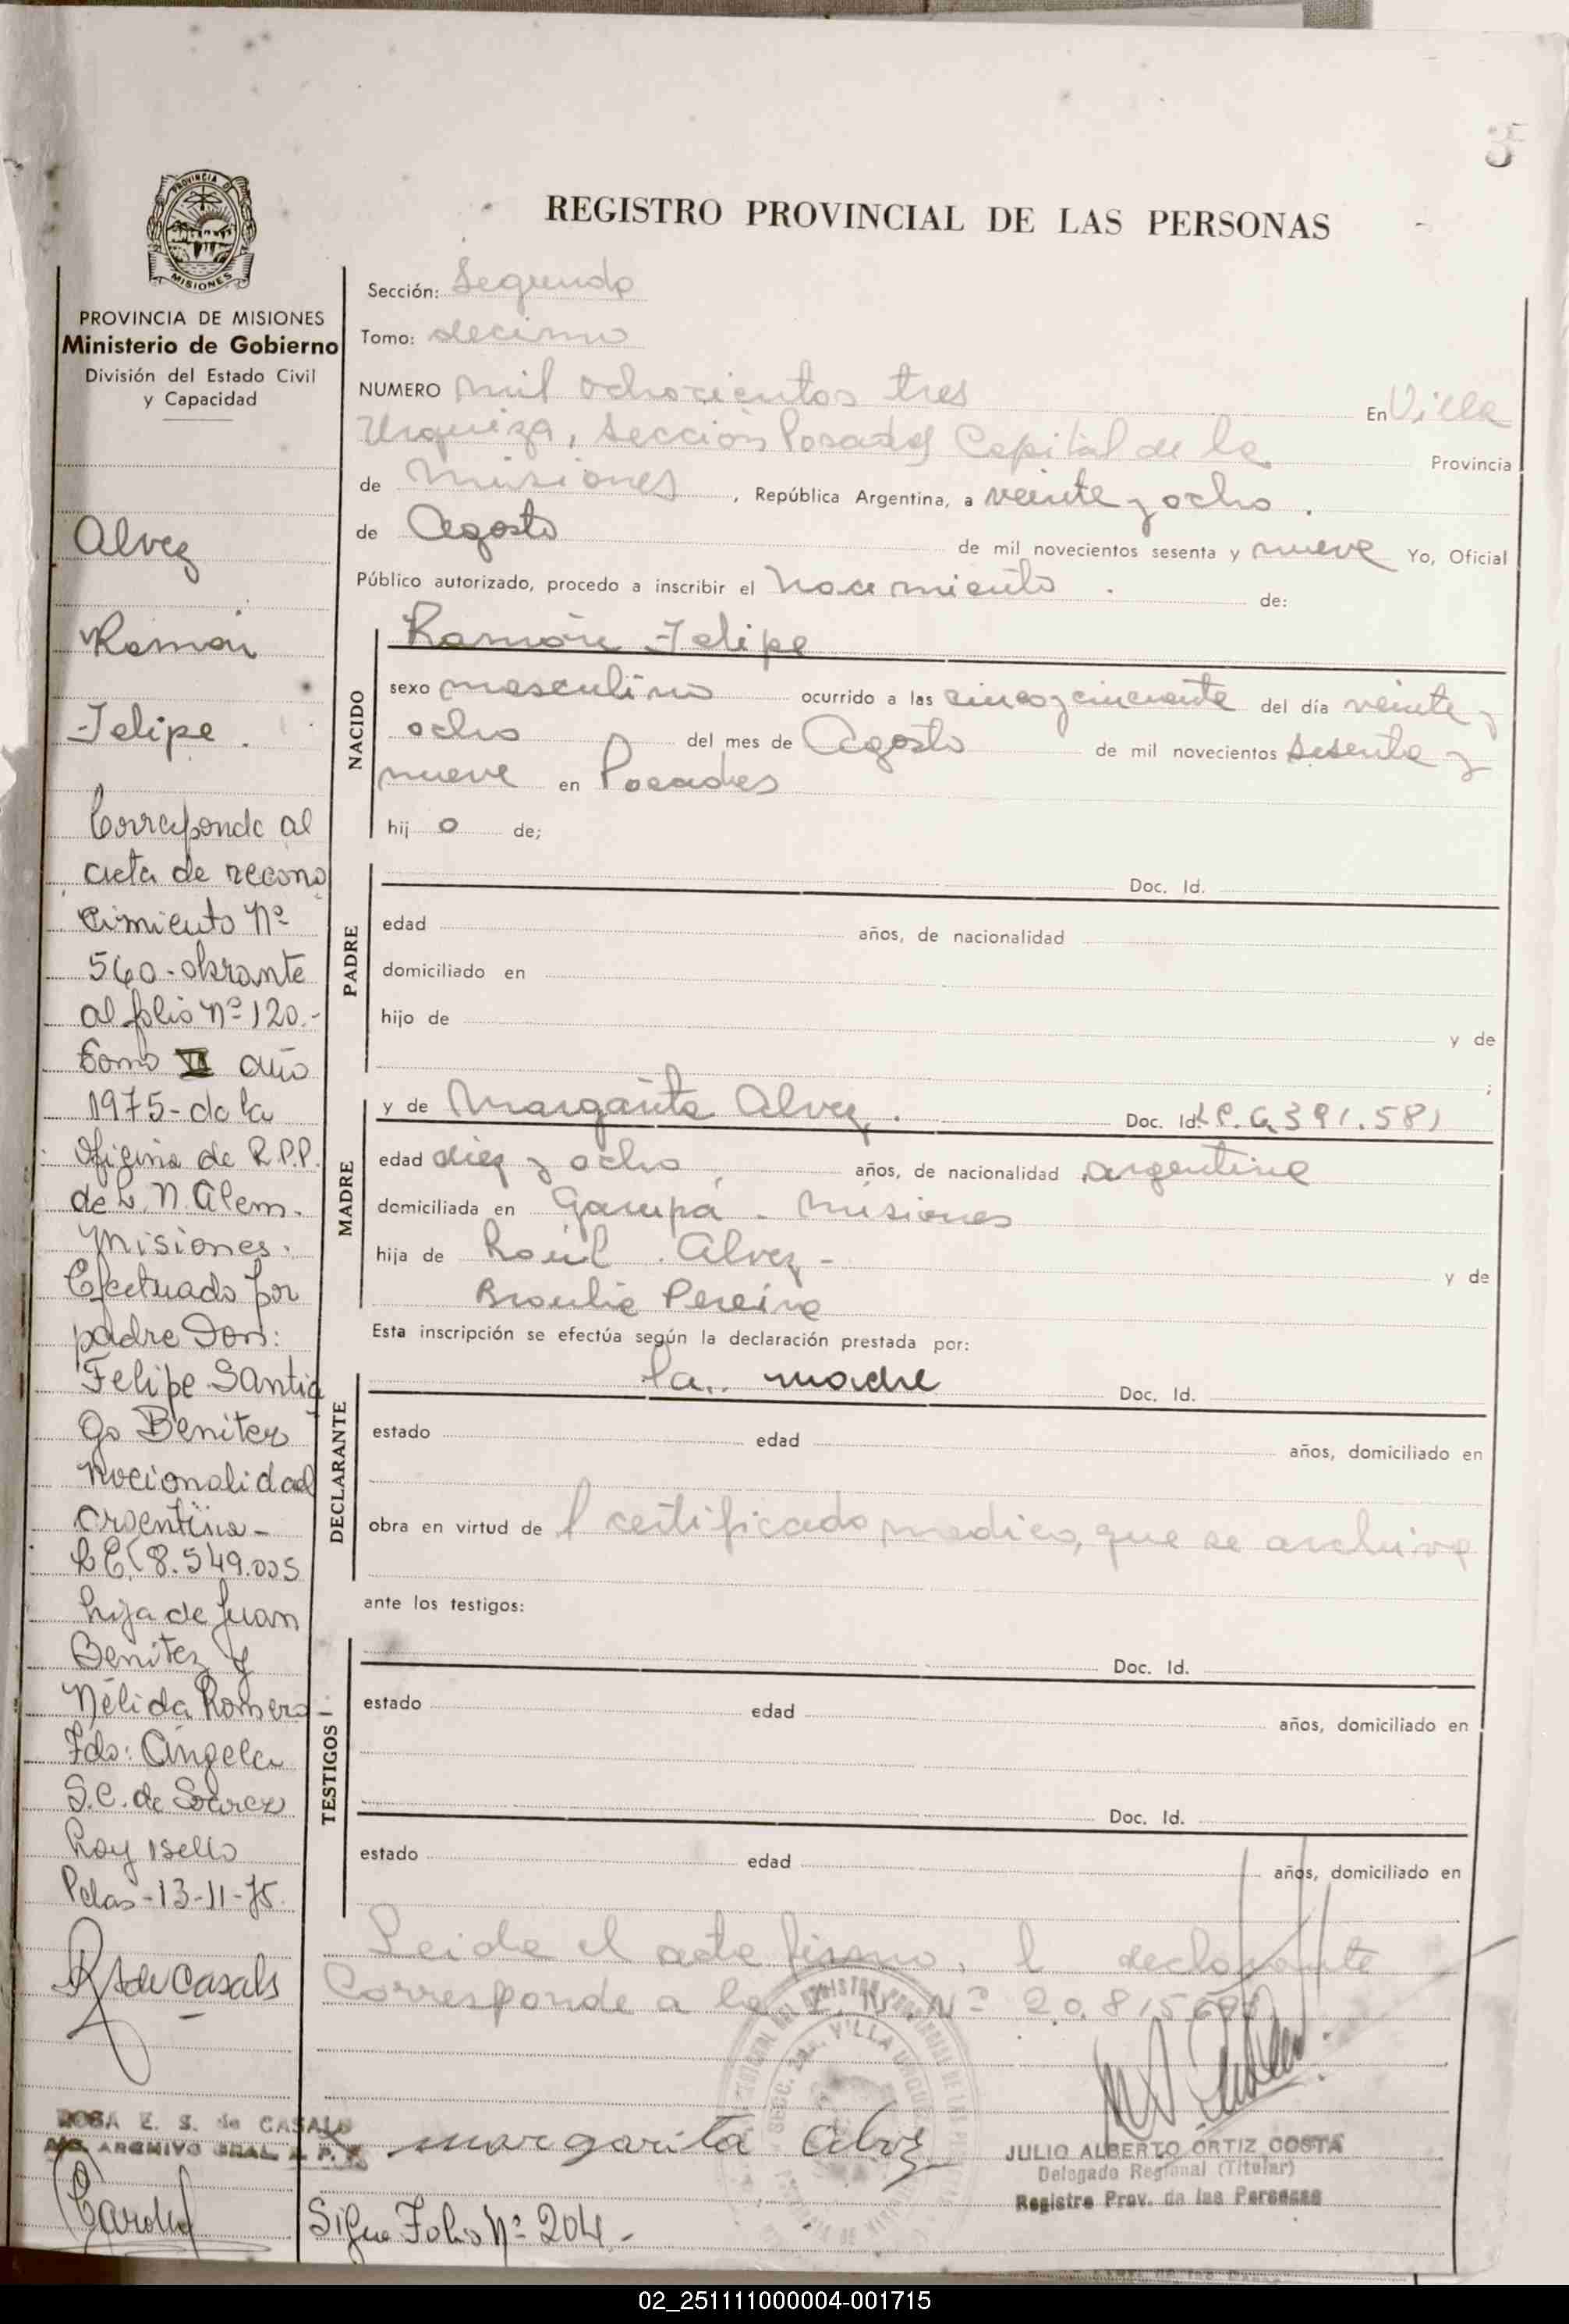 3
PROVINCIA DE
MISIONES
PROVINCIA DE MISIONES
Ministerio de Gobierno
División del Estado Civil
y Capacidad
Alvez
Ramón
Felipe.
Corresponde al
acta de recono
cimiento Nº
560-obrante
al folio Nº 120.-
Tomo VI año
1975- de la
Oficina de R.P.P.
de L. N. Alem.
Misiones.
Efectuado por
padre Don:
Felipe Santia
go Benitez
nacionalidad
argentina-
L E. 8.549.005
hijo de Juan
Benitez y
Nélida Romero
Fdo: Angela
S.C. de Soarez
hay sello
Pdas-13-11-75.
R S de Casals
ROSA E. S. de CASALS
A/C. ARCHIVO GRAL. R. P. P.
REGISTRO PROVINCIAL DE LAS PERSONAS
Sección: Segunda
Tomo: decimo
NUMERO mil ochocientos tres En Villa
Urquiza, Sección Posadas Capital de la Provincia
de Misiones, República Argentina, a veinte y ocho.
de Agosto de mil novecientos sesenta y nueve Yo, Oficial
Público autorizado, procedo a inscribir el nacimiento. de:
NACIDO
Ramón Felipe
sexo masculino ocurrido a las cinco y cincuenta del día veinte y
ocho del mes de Agosto de mil novecientos sesenta y
nueve en Posadas
hij o de;
PADRE
Doc. Id.
edad años, de nacionalidad
domiciliado en
hijo de y de
;
MADRE
y de Margarita Alvez. Doc. Id. L.C. 6.391.581
edad diez y ocho años, de nacionalidad argentina
domiciliada en Garupá - Misiones
hija de Raúl Alvez - y de
Braulia Pereira
Esta inscripción se efectúa según la declaración prestada por:
DECLARANTE
la madre Doc. Id.
estado edad años, domiciliado en
obra en virtud de l certificado medico, que se archiva
ante los testigos:
TESTIGOS
Doc. Id.
estado edad años, domiciliado en
Doc. Id.
estado edad años, domiciliado en
Leida el acta firma, l declarante
Corresponde a la Nº 20.815.
SECC. VILLA URQUIZA
margarita alvez
JULIO ALBERTO ORTIZ COSTA
Delegado Regional (Titular)
Registro Prov. de las Personas
Sigue Folio Nº 204.-
02_251111000004-001715